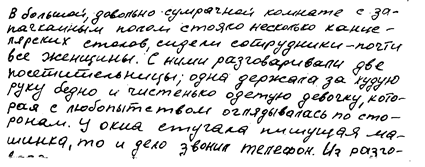 В большой, довольно сумрачной комнате с за-
пачканным полом стояло несколько канце-
лярских столов, сидели сотрудники - почти
все женщины. С ними разговаривали две
посетительницы; одна держала за худую
руку бедно и чистенько одетую девочку, кото-
рая с любопытством оглядывалась по сто-
ронам. У окна стучала пишущая ма-
шинка, то и дело звонил телефон. Из разго-